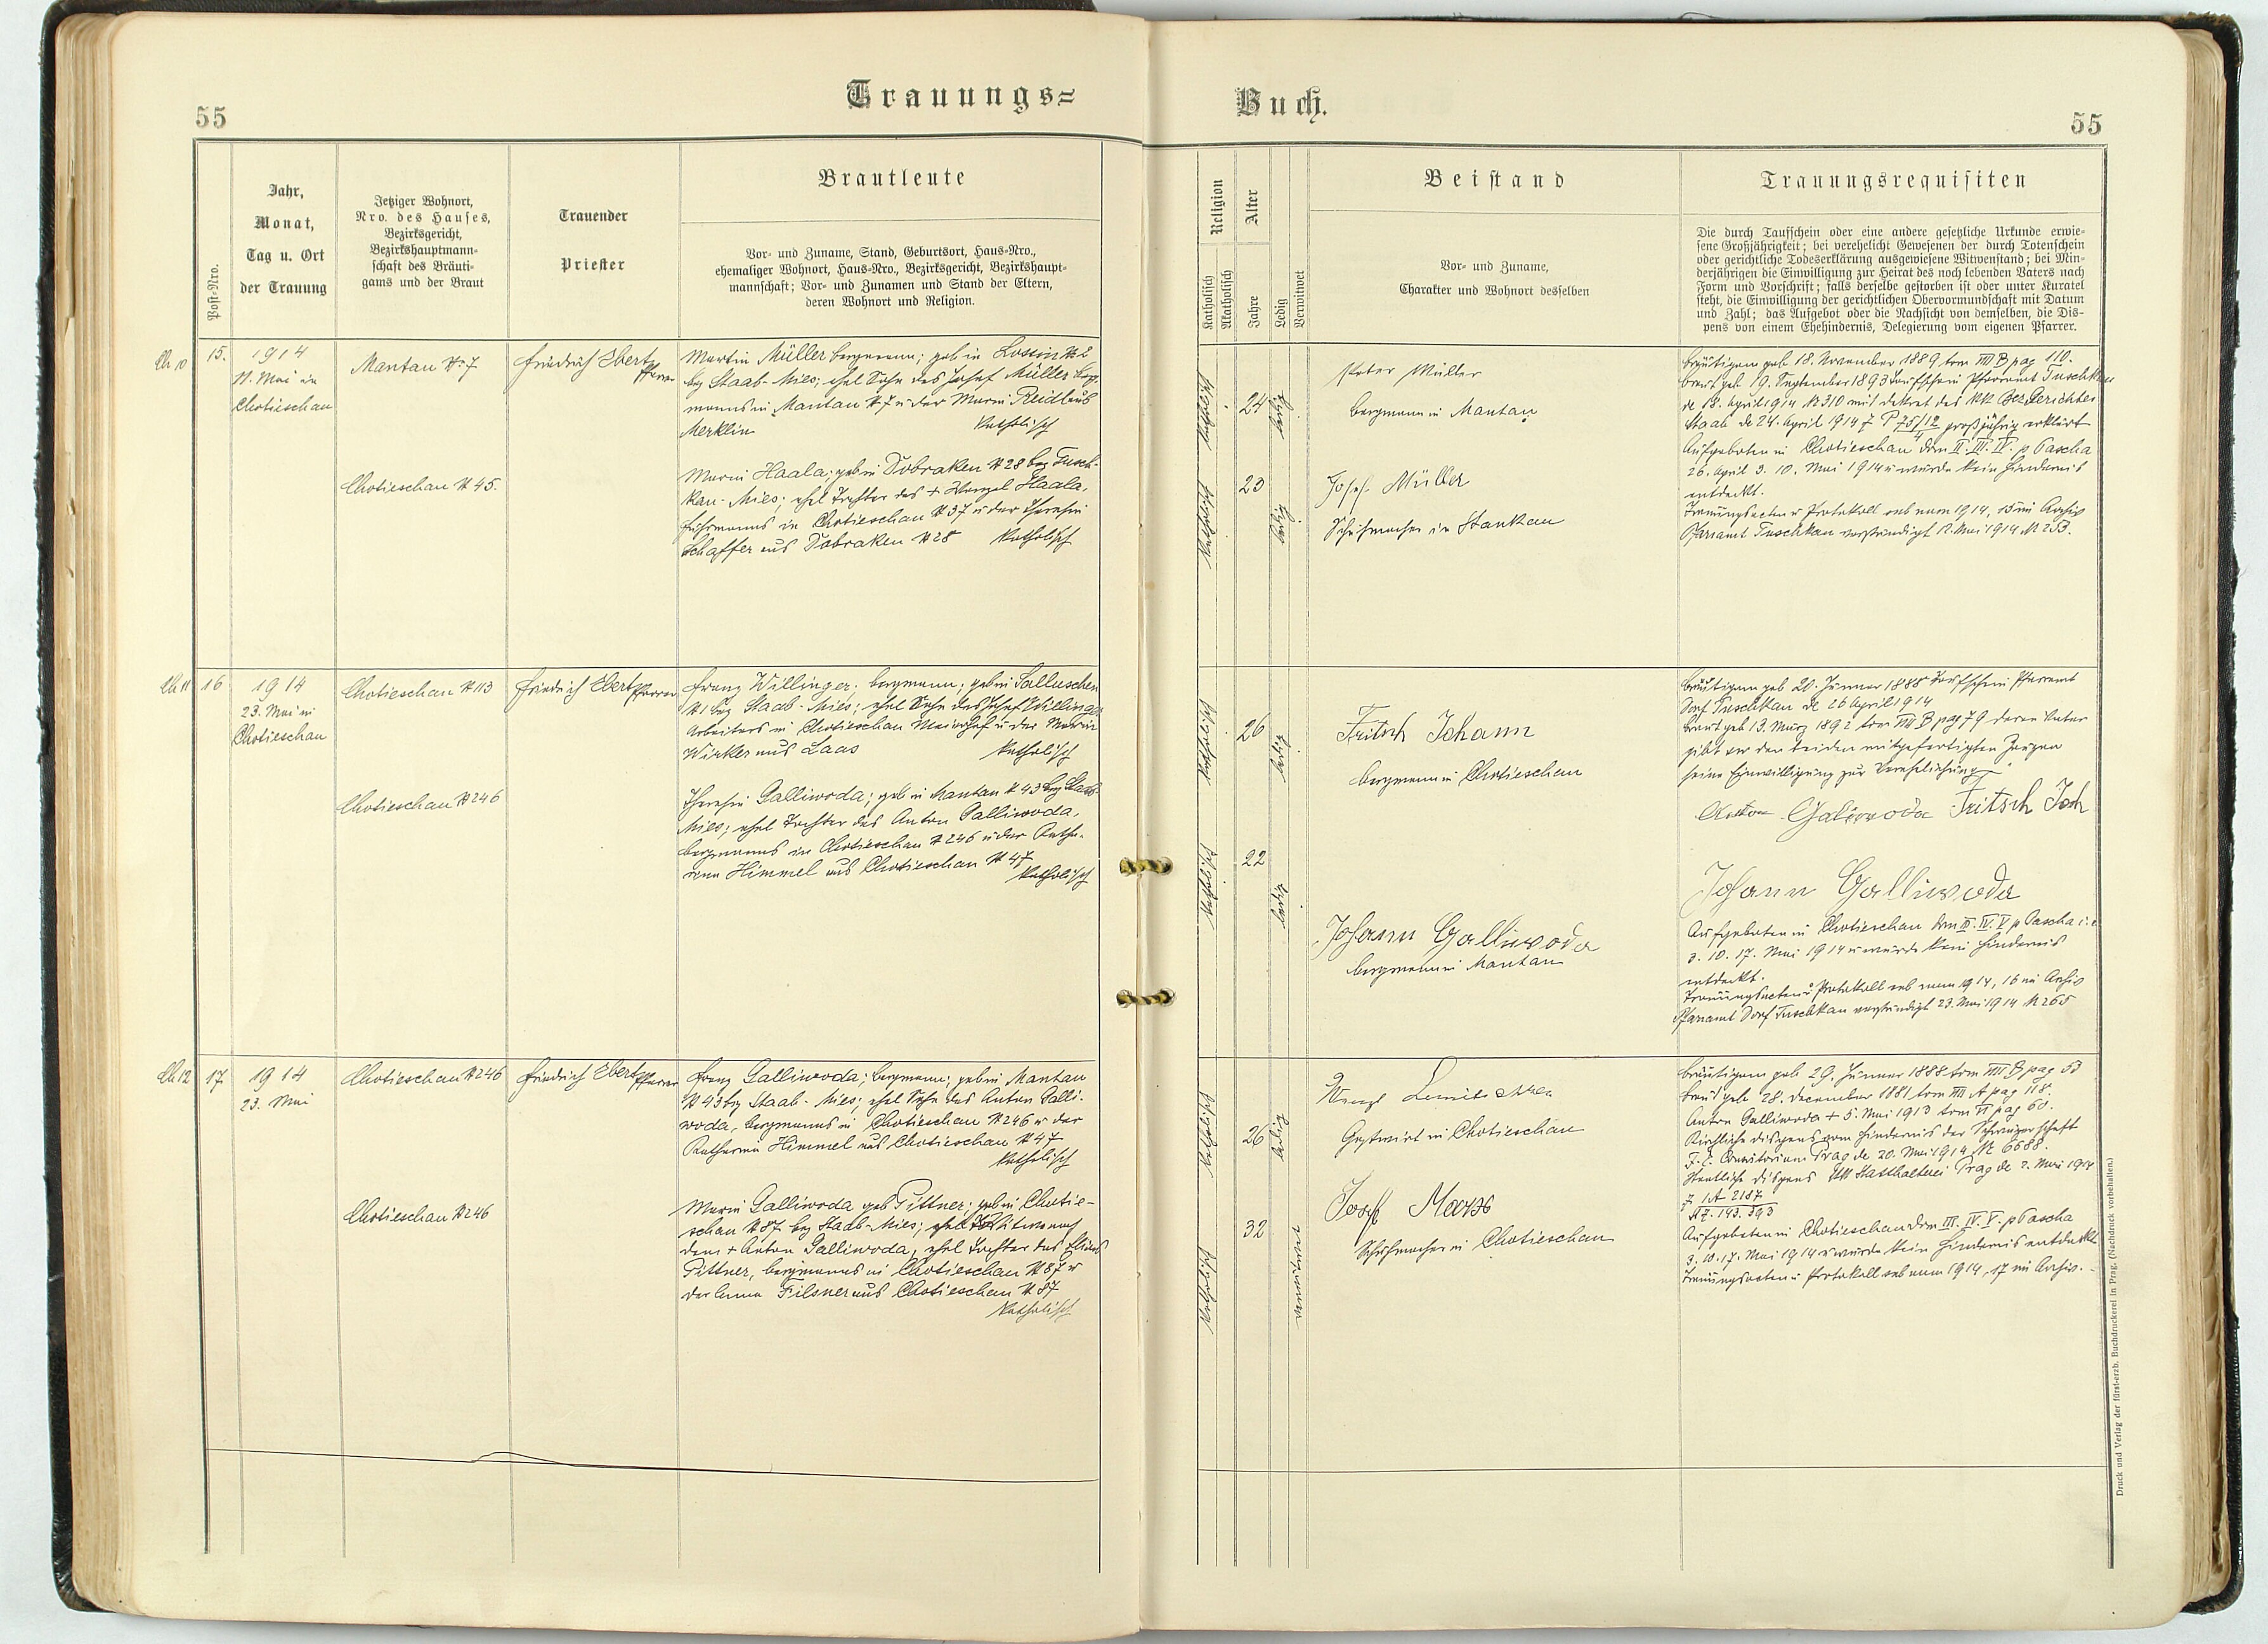 55
Trauungs=
Post=Nro.
Jahr,
Monat,
Tag u. Ort
der Trauung
Jetziger Wohnort,
Nro. des Hauses,
Bezirksgericht,
Bezirkshauptmann-
schaft des Bräuti-
gams und der Braut
Trauender
Priester
Brautleute
Vor- und Zuname, Stand, Geburtsort, Haus=Nro.,
ehemaliger Wohnort, Haus=Nro., Bezirksgericht, Bezirkshaupt-
mannschaft; Vor- und Zunamen und Stand der Eltern,
deren Wohnort und Religion.
Ch 10
15.
1914
11. Mai in
Chotieschau
Mantau N: 7
Friedrich Ebert
Pfarrer
Martin Müller bergmann; geb in Lossin N 2
bez Staab-Mies; ehel Sohn des Josef Müller berg-
manns in Mantau N 7 u der Maria Reidl aus
Merklin
katholisch
Chotieschau N 45.
Maria Haala; geb in Dobraken N 28 bez Tusch-
kau-Mies; ehel Tochter des + Wenzel Haala,
Fuhrmanns in Chotieschau N 37 u der Theresia
Schaffer aus Dobraken N 28 katholisch
Ch 11
16
1914
23. Mai in
Chotieschau
Chotieschau N 113
Friedrich Ebert Pfarrer
Franz Willinger; bergmann; geb in Salluschen
N 1 bez Staab-Mies; ehel Sohn des Josef Willinger
Arbeiters in Chotieschau Meierhof u der Maria
Winkler aus Laas
katholisch
Chotieschau N 246
Theresia Galliwoda; geb in Mantau N 43 bez Staab-
Mies; ehel Tochter des Anton Galliwoda,
bergmanns in Chotieschau N 246 u der Katha-
rina Himmel aus Chotieschau N 47
katholisch
Ch 12
17
1914
23. Mai
Chotieschau N 246
Friedrich Ebert Pfarrer
Franz Galliwoda; bergmann; geb in Mantau
N 43 bez Staab-Mies; ehel Sohn des Anton Galli-
woda, bergmanns in Chotieschau N 246 u der
Katharina Himmel aus Chotieschau N 47
katholisch
Chotieschau N 246
Maria Galliwoda geb Pittner; geb in Chotie-
schau N 87 bez Staab-Mies;
dem + Anton Galliwoda, ehel Tochter des
Pittner, bergmanns in Chotieschau N 87 u
der Anna Filsner aus Chotieschau N 87
katholisch
Buch.
55
Religion
Katholisch
Akatholisch
Alter
Jahre
Ledig
Verwitwet
Beistand
Vor- und Zuname,
Charakter und Wohnort desselben
Trauungsrequisiten
Die durch Taufschein oder eine andere gesetzliche Urkunde erwie-
sene Großjährigkeit; bei verehelicht Gewesenen der durch Totenschein
oder gerichtliche Todeserklärung ausgewiesene Witwenstand; bei Min-
derjährigen die Einwilligung zur Heirat des noch lebenden Vaters nach
Form und Vorschrift; falls derselbe gestorben ist oder unter Kuratel
steht, die Einwilligung der gerichtlichen Obervormundschaft mit Datum
und Zahl; das Aufgebot oder die Nachsicht von demselben, die Dis-
pens von einem Ehehindernis, Delegierung vom eigenen Pfarrer.
katholisch
24
ledig
Peter Müller
bergmann in Mantau
katholisch
20
ledig
Josef Müller
Schuhmacher in Stankau
Bräutigam geb 18. November 1889 tom VIII B pag 110.
Braut geb 19. September 1893 Taufschein Pfarramt Tuschkau
de 18. April 1914 N 310 mit dekret des KK Bez Gerichtes
Staab de 24. April 1914 Z P 75/12 großjährig erklärt
4
Aufgeboten in Chotieschau dom II. III. IV. p Pascha
26. April 3. 10. Mai 1914 u wurde kein Hindernis
entdeckt.
Trauungsacten u Protokoll sub num 1914, 15 im Archiv
Pfarramt Tuschkau verständigt 12. Mai 1914 N 253.
katholisch
26
ledig
Fritsch Johann
bergmann in Chotieschau
katholisch
22
ledig
Johann Galliwoda
bergmann in Mantau
Bräutigam geb 20. Jänner 1888 Taufschein Pfarramt
Dorf Tuschkau de 26 April 1914
Braut geb 13. März 1892 tom VIII B pag 79 deren Vater
gibt vor den beiden mitgefertigten Zeugen
seine Einwilligung zur Verehelichung
Anton Galiwoda Fritsch Joh
Johann Galliwoda
Aufgeboten in Chotieschau dom III. IV. V p Pascha i. e
3. 10. 17. Mai 1914 u wurde kein Hindernis
entdeckt.
Trauungsacten u Protokoll sub num 1914, 16 im Archiv
Pfarramt Dorf Tuschkau verständigt 23. Mai 1914 N 265
katholisch
26
ledig
Wenzl
Gastwirt in Chotieschau
katholisch
32
verwitwet
Josef
Schuhmacher in Chotieschau
Bräutigam geb 29. Jänner 1888 tom VIII B pag 53
Braut geb 28. December 1881 tom VIII A pag 118.
Anton Galliwoda + 5. Mai 1913 tom VI pag 60.
Kirchliche dispens vom Hindernis der Schwägerschaft
F. E. Consistorium Prag de 20. Mai 1914 N 6688.
Staatliche dispens KK Statthalterei Prag de 2. Mai 1914
Z 1A 2187
N Z. 143.393
Aufgeboten in Chotieschau dom III. IV. V. p Pascha
3. 10. 17. Mai 1914 u wurde kein Hindernis entdeckt.
Trauungsacten u Protokoll sub num 1914, 17 im Archiv.
Druck und Verlag der fürst-erzb. Buchdruckerei in Prag. (Nachdruck vorbehalten.)